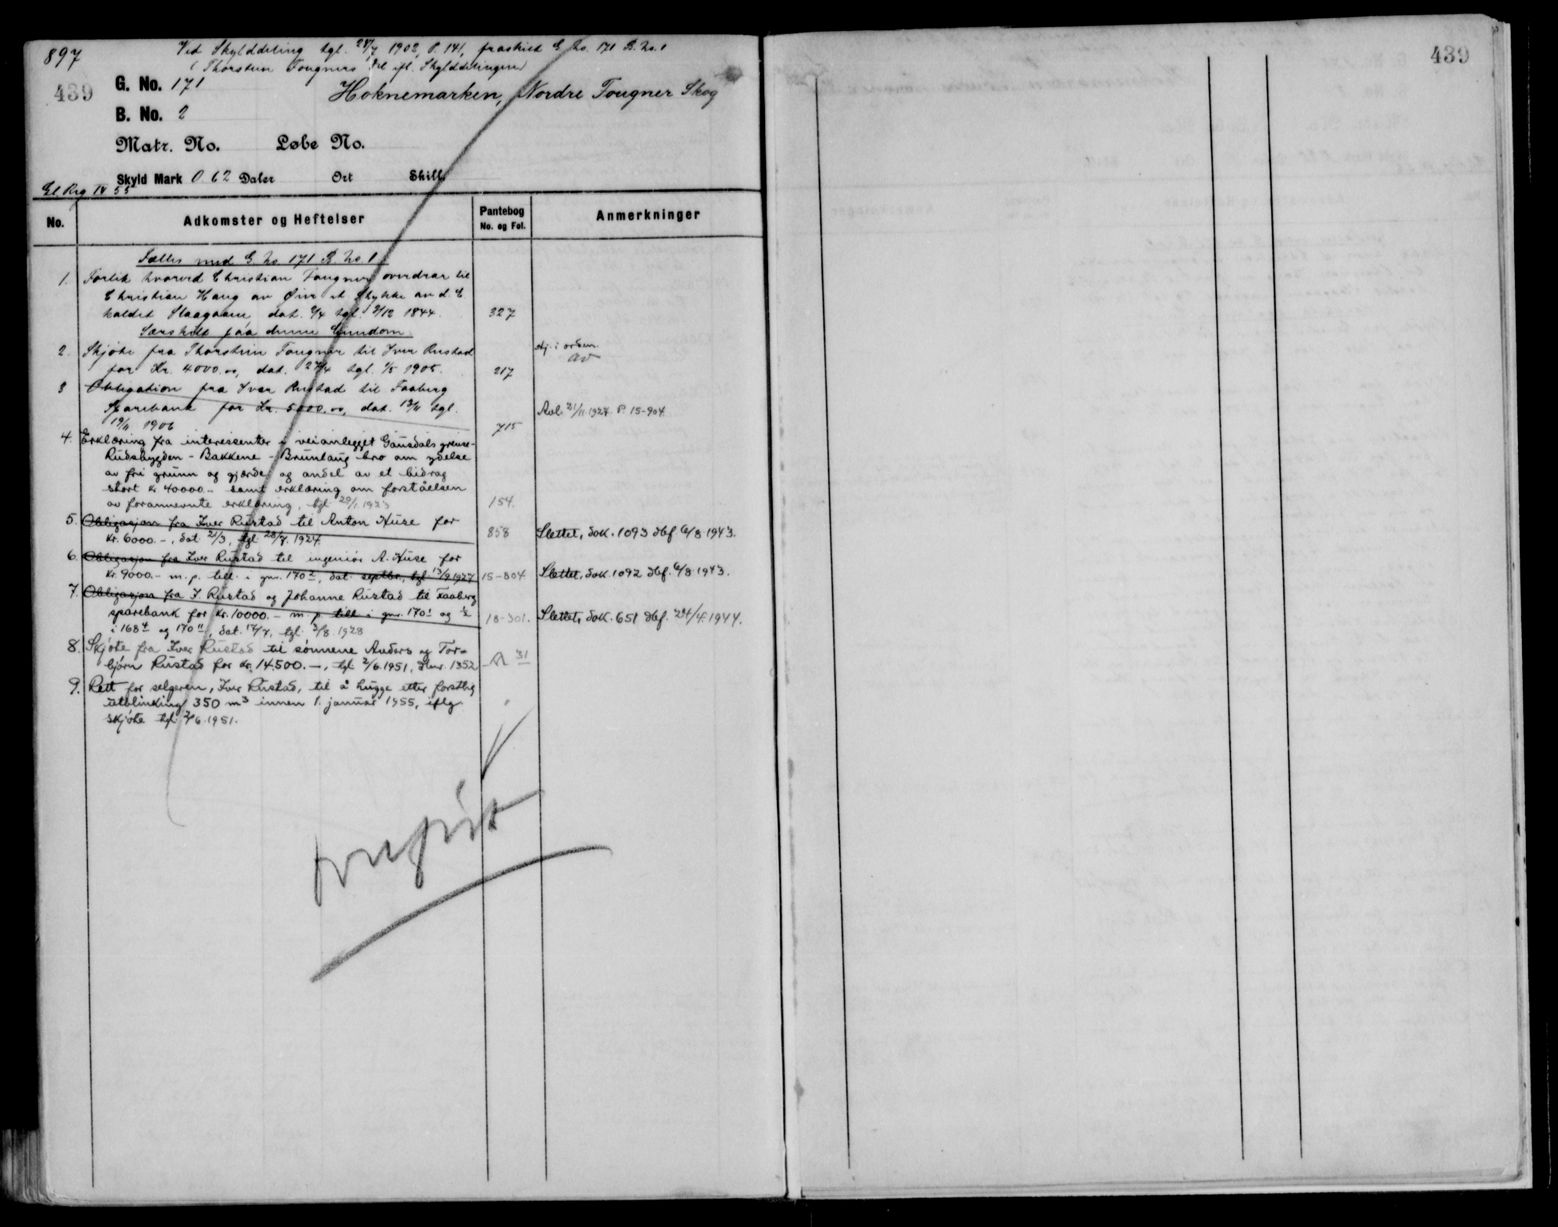 897
Ved Skylddeling tgl. 28/7 1902, P. 141, fraskilt G. No. 171 B. No. 1
(Thorstein Tougners Del ifl. Skylddelingen)
439
G. No. 171
Hoknemarken, Nordre Tougner Skog
B. No. 2
Matr. No. Løbe No.
Skyld Mark 0 62 Daler Ort Skill.
Gl. Reg 14 55
No. Adkomster og Heftelser Pantebog No. og Fol. Anmerkninger
Fælles med G. No 171 B. No 1
1. Forlik hvorved Christian Tougner overdrar til
Christian Haug av Øier et Stykke av d. G
kaldet Slaagaam dat. tgl. 3/12 1844. 327
Særskilt paa denne Eiendom
2. Skjøte fra Thorstein Tougner til Iver Rustad
for Kr. 4000.00, dat. 27/4 tgl. 1/5 1905. 217
Hj. i orden.
av
3 Obligation fra Iver Rustad til Faaberg
Sparebank for Kr. 5000.00, dat. 13/11 tgl.
19/11 1906 715 Avl. 21/11 1927. P. 15-904
4. Erklæring fra interessenter i veianlegget Gausdals grense-
Rudsbygden - Bakkene - Bruntaug bro om ydelse
av fri grunn og gjærde og andel av et bidrag
stort kr 40000.- samt erklæring om forståelsen
av forannevnte erklæring, tgl 20/1 1923 154
5. Obligasjon fra Iver Rustad til Anton Huse for
kr. 6000.-, dat 21/3, tgl 28/7. 1924. 858 Slettet, dok. 1093 dbf 6/8 1943.
6. Obligasjon fra Iver Rustad til ingeniør A. Huse for
kr. 9000.- m. p. till. i gnr. 170², dat. septbr., tgl 13/9 1927 15-804 Slettet, dok. 1092 dbf. 6/8 1943.
7. Obligasjon fra I. Rustad og Johanne Rustad til Faaberg
sparebank for kr. 10000.- m p till i gnr. 170¹ og ½
i 168⁴ og 170¹¹, dat. 17/7, tgl. 3/8. 1928 18-301. Slettet, dok. 651 dbf. 24/4. 1944.
8. Skjøte fra Iver Rustad til sønnene Anders og Tor-
bjørn Rustad for kr. 14.500.-, tgl 2/6. 1951, dnr. 1352 31
9. Rett for selgeren, Iver Rustad, til å hugge etter forstlig
utblinking 350 m³ innen 1. januar 1955, iflg.
skjøte tgl. 2/6. 1951. "
439